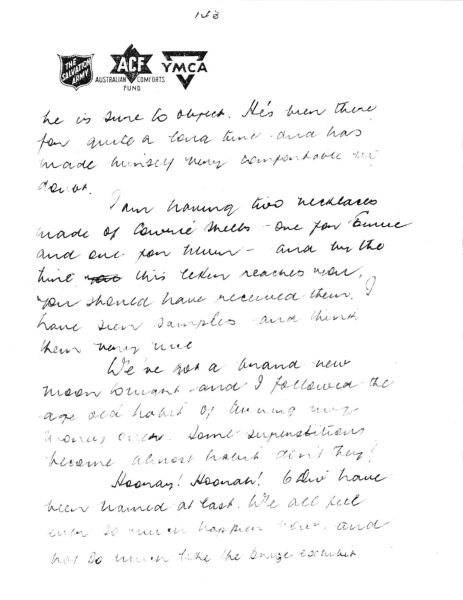 THE SALVATION ARMY
ACF
AUSTRALIAN COMFORTS FUND
YMCA
he is sure to object. He's been there
for quite a long time and has
made himself very comfortable no
doubt.
I am having two necklaces
made of Cowrie shells - one for
and one for - and by the
time this letter reaches you,
you should have received them. I
have seen samples and think
them very nice
We've got a brand new
moon tonight and I followed the
age old habit of turning my
money over. Some superstitions
become almost habit don't they?
Hooray! Hooray! 6 Div have
been named at last. We all feel
ever so much happier now and
not so much like the prize exhibit